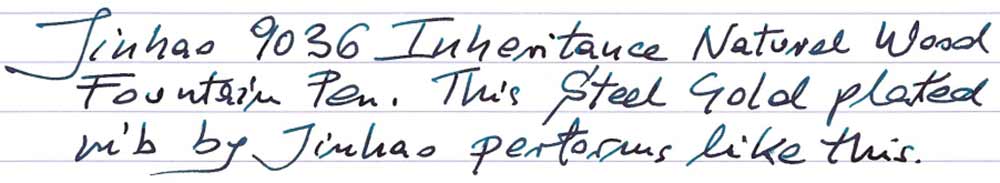 Jinhao 9036 Inheritance Natural Wood
Fountain Pen. This Steel Gold plated
nib by Jinhao performs like this.